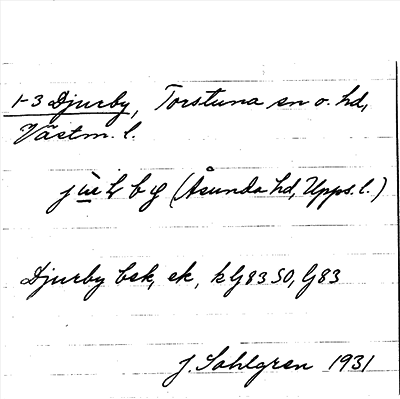 1-3 Djurby, Torstuna sn o. hd,
Västm. l.
(Åsunda hd, Upps. l.)
Djurby bsk, ek, kG83 SO, G83
J. Sahlgren 1931